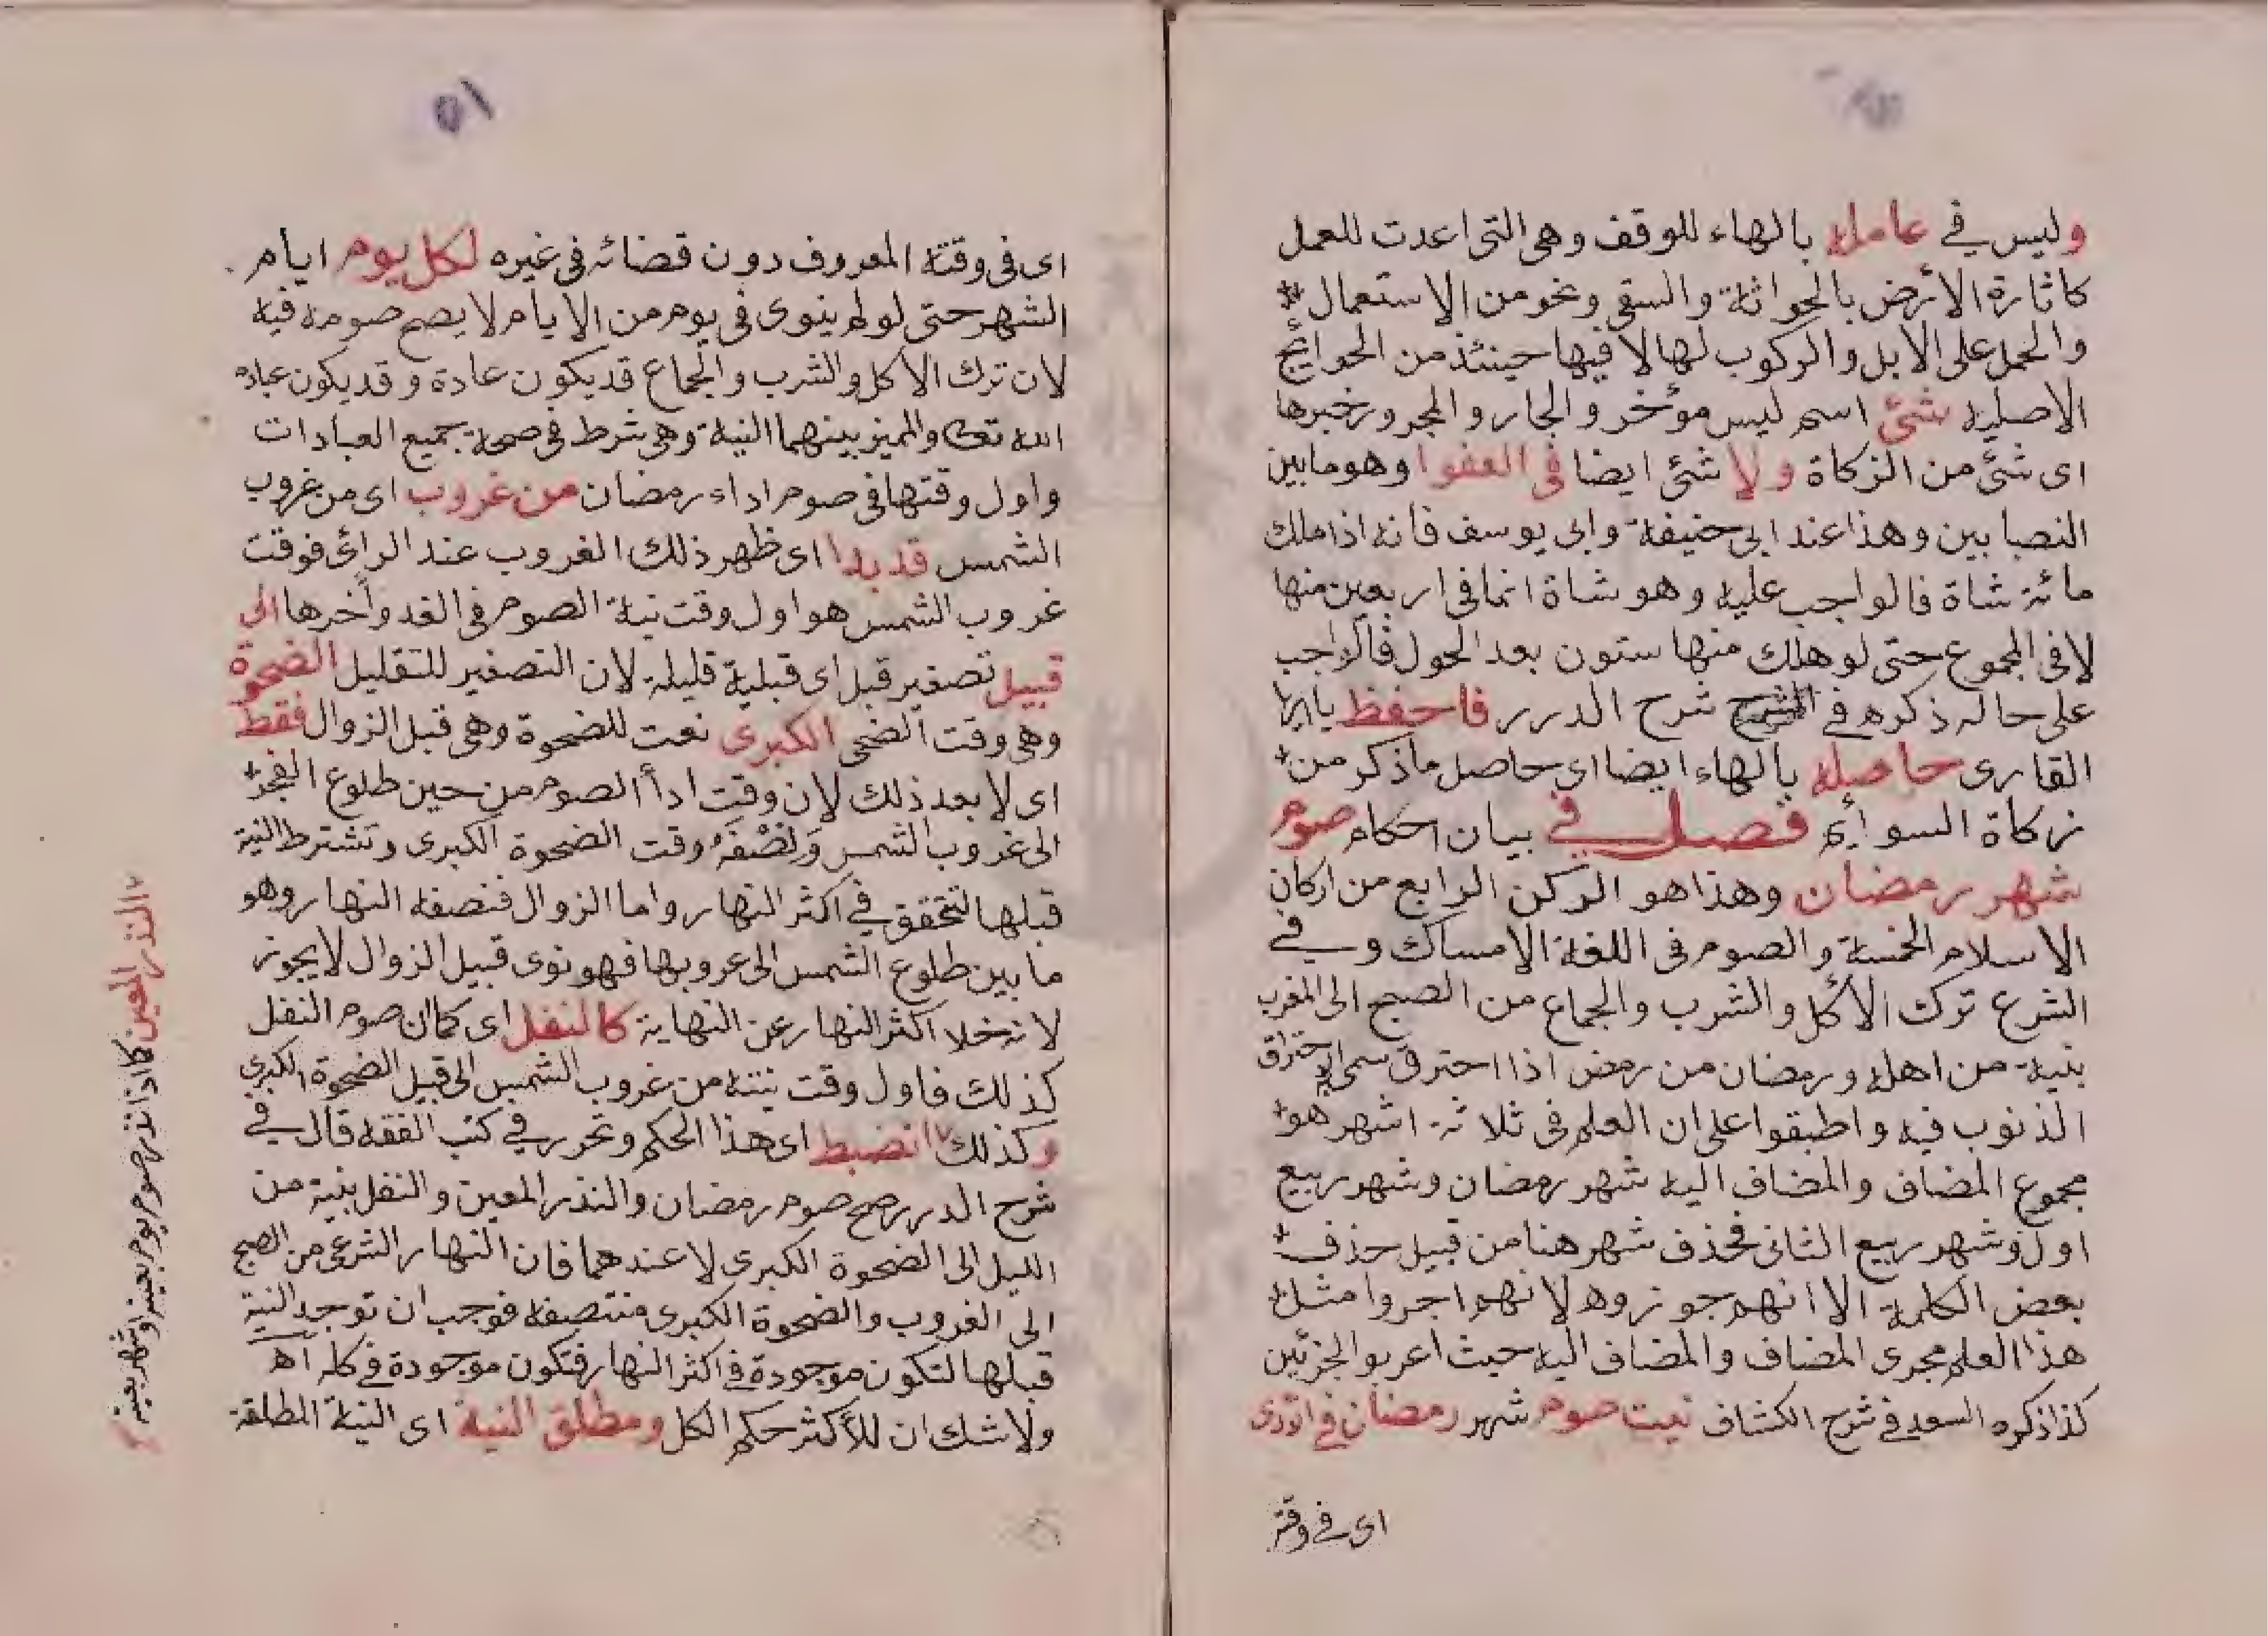 وليس في عامله بالهاء للوقف وهي التى اعدت للعمل
كاثارة الأرض بالحراثة والسقى ونحو من الاستعمال
والحمل على الابل والركوب لها لا فيها حينئذ من الحوائج
الاصلية شئ اسم ليس مؤخر والجار والمجرور خبرها
اى شئ من الزكاة ولا شئ ايضا فى العفوا وهو ما بين
النصابين وهذا عند ابى حنيفة وابى يوسف فانه اذا ملك
مائة شاة فالواجب عليه وهو شاة انما فى اربعين منها
لا فى المجموع حتى لو هلك منها ستون بعد الحول فالواجب
على حاله ذكره في شرح الدرر فاحفظ يا ايها
القارى حاصله بالهاء ايضا اى حاصل ما ذكر من
زكاة السوائم فصل في بيان احكام صوم
شهر رمضان وهذا هو الركن الرابع من اركان
الاسلام الخمسة والصوم فى اللغة الامساك وفي
الشرع ترك الأكل والشرب والجماع من الصبح الى المغرب
بنية من اهله ورمضان من رمض اذا احترق سمى به لاحتراق
الذنوب فيه واطبقوا على ان العلم فى ثلاثة اشهر هو
مجموع المضاف والمضاف اليه شهر رمضان وشهر ربيع
اول وشهر ربيع الثانى فحذف شهر هنا من قبيل حذف
بعض الكلمة الا انهم جوزوه لانهم اجروا مثل
هذا العلم مجرى المضاف والمضاف اليه حيث اعربوا الجزئين
كذا ذكره السعد في شرح الكشاف نيت صوم شهر رمضان في
اى في وقته
٥١
اى فى وقته المعروف دون قضائه فى غيره لكل يوم ايام
الشهر حتى لو لم ينوى فى يوم من الايام لا يصح صومه فيه
لان ترك الاكل والشرب والجماع قد يكون عادة وقد يكون عبادة
الله تعالى والمميز بينهما النية وهي شرط فى صحة جميع العبادات
واول وقتها فى صوم اداء رمضان من غروب اى من غروب
الشمس قد بدا اى ظهر ذلك الغروب عند الرائى فوقت
غروب الشمس هو اول وقت نية الصوم فى الغد وآخرها الى
قبيل تصغير قبل اى قبلية قليلة لان التصغير للتقليل الضحوة
وهي وقت الضحى الكبرى نعت للضحوة وهي قبل الزوال فقط
اى لا بعد ذلك لان وقت ادأ الصوم من حين طلوع الفجر
الى غروب الشمس ونصفه وقت الضحوة الكبرى وتشترط النية
قبلها لتحقق في اكثر النهار واما الزوال فنصفه النهار وهو
ما بين طلوع الشمس الى غروبها فهو نوى قبيل الزوال لا يجوز
لانه خلا اكثر النهار عن النهاية كالنفل اى كما ان صوم النفل
كذلك فاول وقت نيته من غروب الشمس الى قبيل الضحوة الكبرى
وكذلك انضبط اى هذا الحكم وتحرر في كتب الفقه قال في
شرح الدرر صح صوم رمضان والنذر المعين والنفل بنية من
الليل الى الضحوة الكبرى لا عندهما فان النهار الشرعى من الصبح
الى الغروب والضحوة الكبرى منتصفه فوجب ان توجد النية
قبلها لتكون موجودة في اكثر النهار فتكون موجودة في كله اه
ولا شك ان للأكثر حكم الكل ومطلق النية اى النية المطلقة
النذر المعين كما اذا نذر صوم يوم بعينه او شهر بعينه